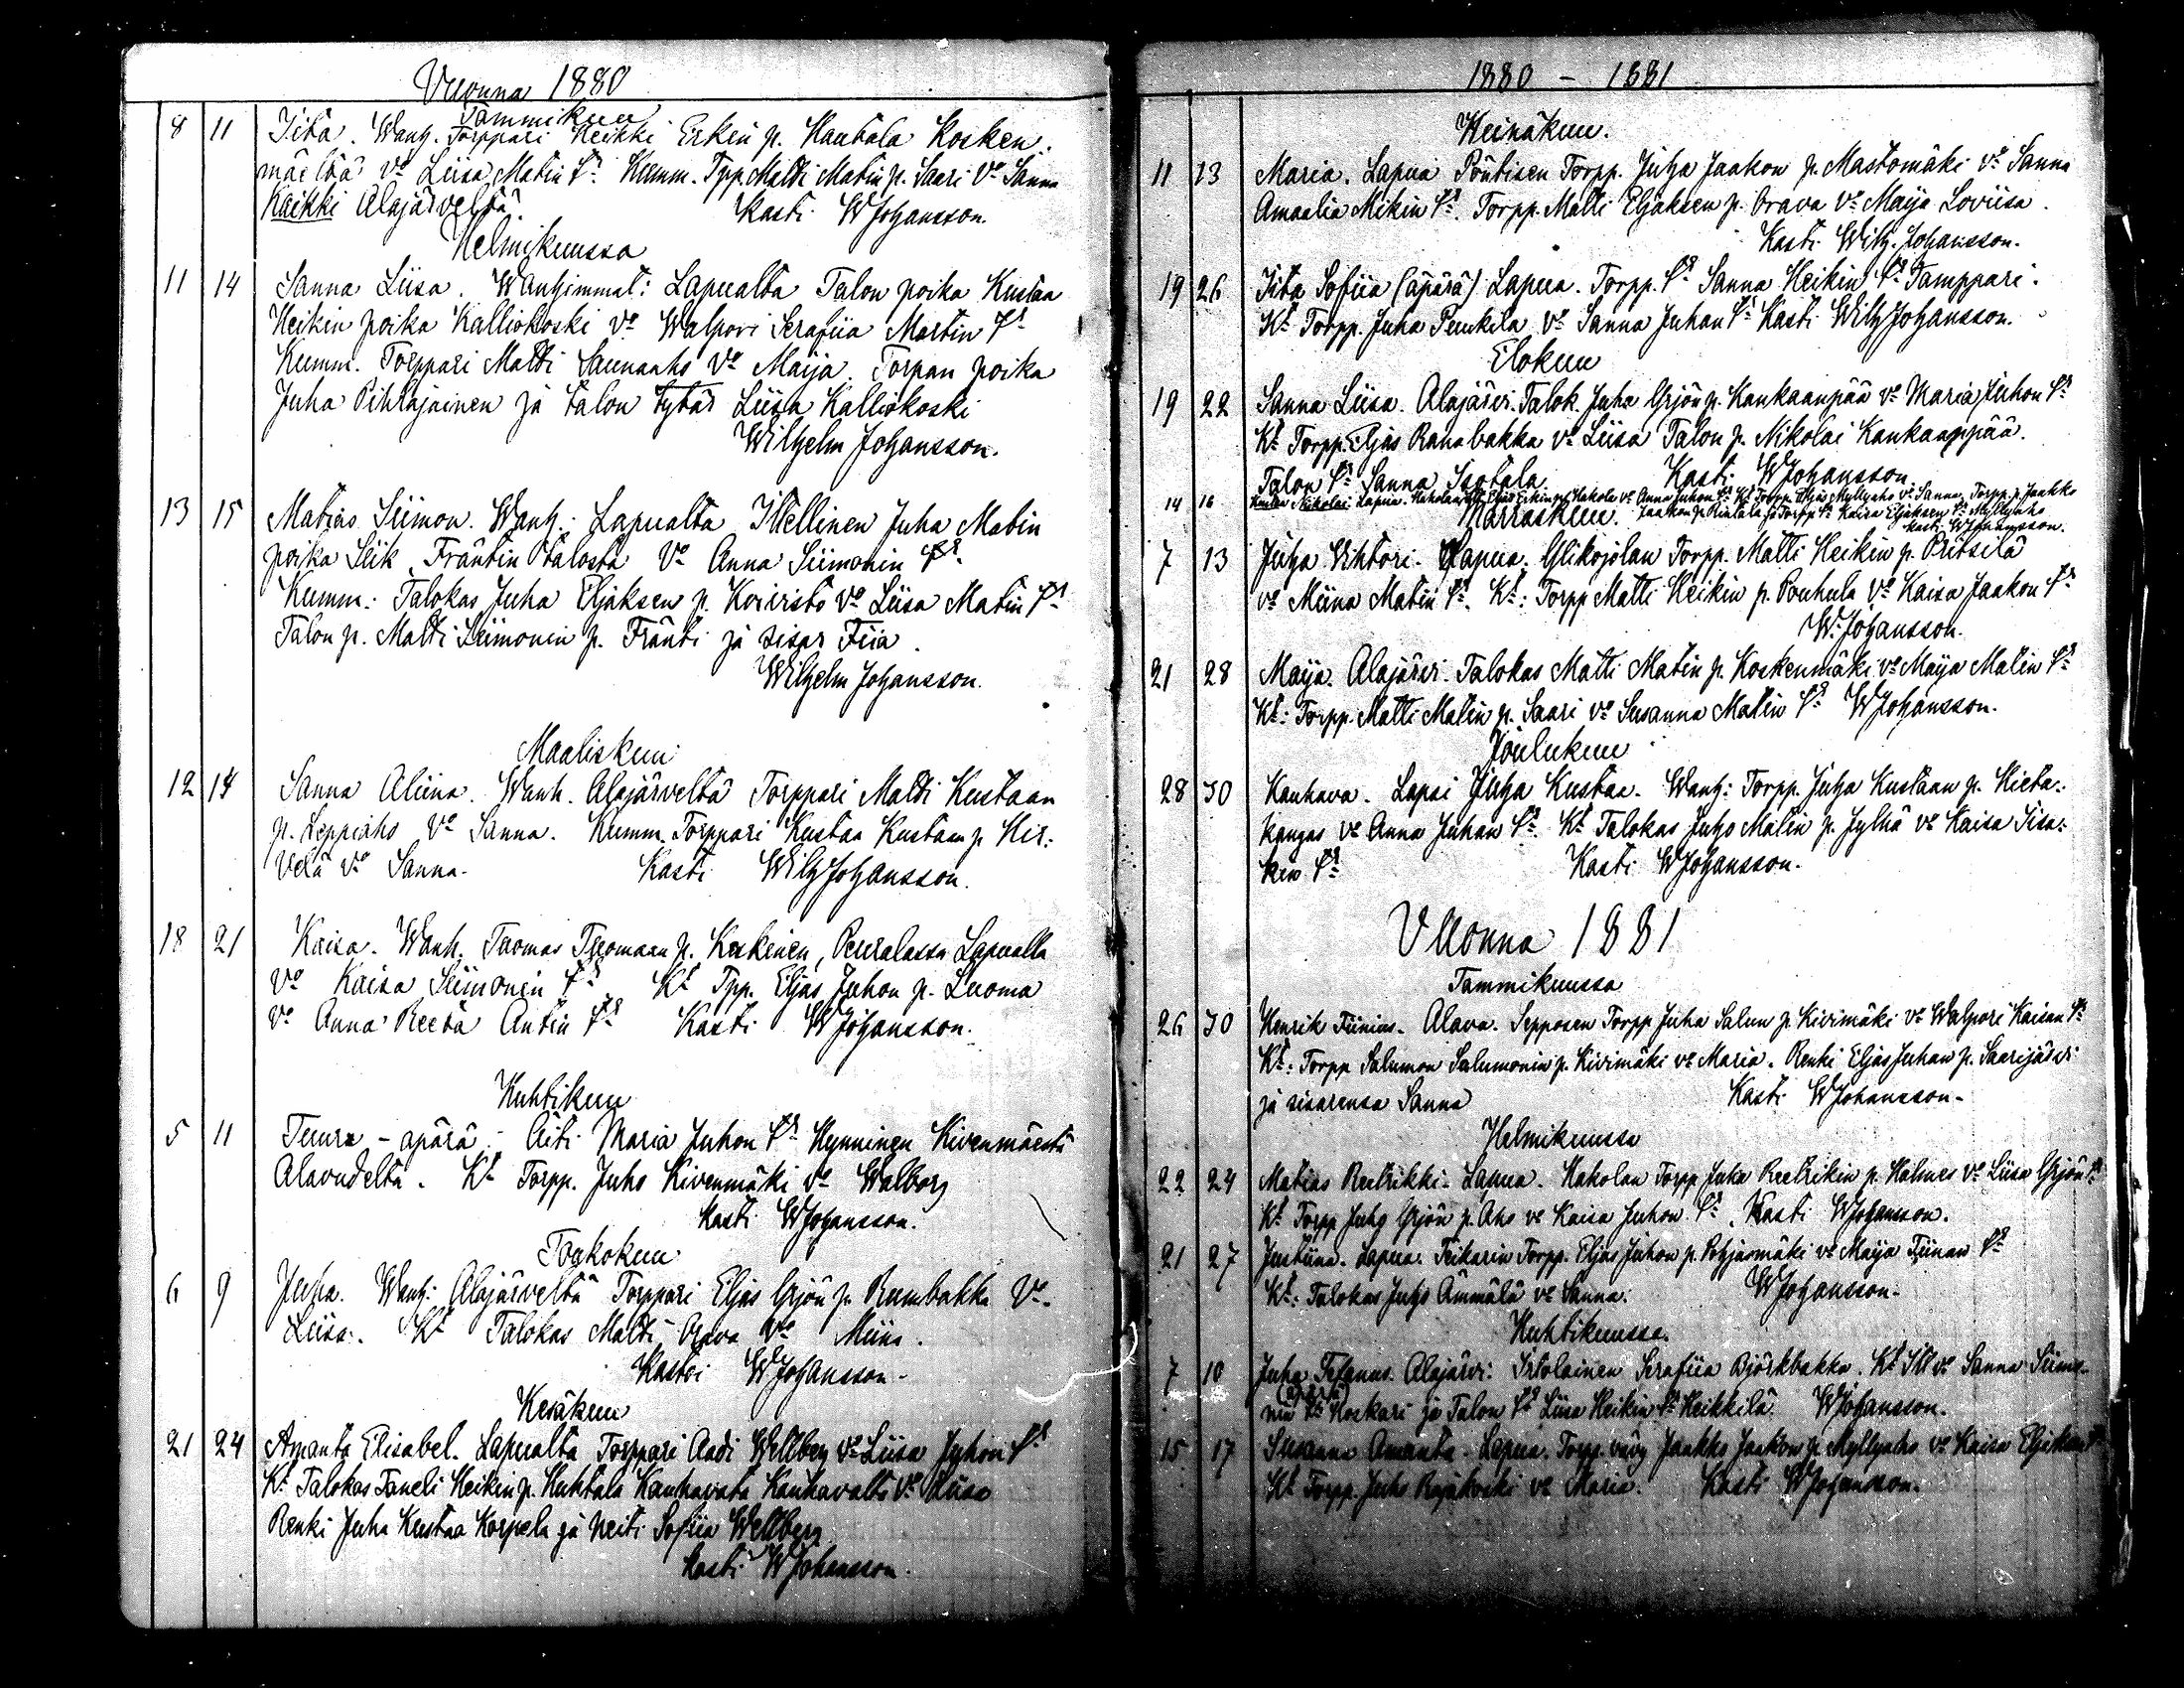 Vuonna 1880
Tammikuu
8 11 Iita. Wanh. Torppari Heikki Erkin p. Hantala Kosken-
mäeltä vo Liisa Matin tr. Kumm. Tpp. Matti Matin p. Saari Vo Sanna
Kaikki Alajärveltä. Kasti WJohansson.
Helmikuussa
11 14 Sanna Liisa. Wanhimmat: Lapualta Talon poika Kustaa
Heikin poika Kalliokoski vo Walpori Serafiia Martin tr
Kumm. Torppari Matti Saunaaho Vo Maija. Torpan poika
Juha Pihlajainen ja talon tytär Liisa Kalliokoski
Wilhelm Johansson.
13 15 Matias Siimon. Wanh.: Lapualta Itellinen Juha Matin
poika Fräntin talosta Vo Anna Siimonin tr.
Kumm.: Talokas Juha Eljaksen p. Koivisto Vo Liisa Matin tr
Talon p. Matti Siimonin p. Fränti ja sisar Fiia.
Wilhelm Johansson.
Maaliskuu
12 14 Sanna Aliina. Wanh. Alajärveltä Torppari Matti Kustaan
p. Leppiaho Vo Sanna. Kumm. Torppari Kustaa Kustaan p. Hir-
velä vo Sanna. Kasti Wilh Johansson.
18 21 Kaisa. Wanh. Tuomas Tuomaan p. Keskinen, Peuralassa Lapualla
Vo Kaisa Siimonin tr. Kt Tpp. Eljas Juhon p. Luoma
Vo Anna Reeta Antin tr Kasti WJohansson.
Huhtikuu
5 11 - apärä. Äiti Maria Juhon tr Hynninen Kivenmäestä
Alavudelta. Kt Torpp. Juho Kivenmäki vo Walborg
Kasti WJohansson.
Toukokuu
6 9 Juha. Wanh: Alajärveltä Torppari Eljas Yrjön p. Vo
Liisa. Kt Talokas Matti Vo Miina.
Kastoi WJohansson.
Kesäkuu
21 24 Amanta Elisabet. Lapualta Torppari Aadi Wellberg vo Liisa Juhon tr
Kt Talokas Taneli Heikin p. Huhtala Kauhavalta Vo Liisa
Renki Juha Kustaa Korpela ja Neiti Sofiia Wellberg
Kasti WJohansson.
1880 - 1881
Heinäkuu.
11 13 Maria. Lapua Torpp. Juha Jaakon p. Mastomäki vo Sanna
Amaalia Mikin tr. Torpp. Matti Eljaksen p. Orava vo Maija Loviisa.
Kasti Wilh. Johansson.
19 26 Iita Sofiia (äpärä) Lapua. Torpp. tr Sanna Heikin tr Tamppari.
Kt Torpp. Juha Penkilä Vo Sanna Juhan tr Kasti Wilh Johansson.
Elokuu
19 22 Sanna Liisa. Alajärvi. Talok. Juha Yrjön p. Kankaanpää vo Maria Juhon tr
Kt Torpp. Eljas vo Liisa Talon p. Nikolai Kankaanpää.
Talon tr Sanna Isotalo. Kasti WJohansson.
14 16 Kustaa Nikolai. Lapua. Erkin p. Hakola vo Anna Juhon tr Kt Torpp. Eljas Myllyaho vo Sanna, Torpp. p. Jaakko
Jaakon p. Rintala ja Torpp. tr Kaisa Eljaksen tr Myllyaho
Kasti WJohansson.
Marraskuu.
7 13 Juha Vihtori. Lapua. Ylikojolan Torpp. Matti Heikin p. Pritsilä
vo Miina Matin tr. Kt: Torpp Matti Heikin p. Pouhula vo Kaisa Jaakon tr
W. Johansson.
21 28 Maija. Alajärvi. Talokas Matti Matin p. Koskenmäki vo Maija Matin tr
Kt: Torpp. Matti Matin p. Saari vo Susanna Matin tr WJohansson.
Joulukuu
28 30 Kauhava. Lapsi Juha Kustaa. Wanh: Torpp. Juha Kustaan p. Hieta-
kangas vo Anna Juhan tr. Kt Talokas Juho Matin p. Jylhä vo Kaisa Iisa-
kin tr Kasti WJohansson.
Vuonna 1881
Tammikuussa
26 30 Henrik Fiinius. Alava. Sepposen Torpp Juha Salun p. Kivimäki vo Walpori Kaisan tr
Kt: Torpp Salumon Salumonin p. Kivimäki vo Maria. Renki Eljas Juhan p. Saarijärvi
ja sisarensa Sanna Kasti WJohansson.
Helmikuussa
22 24 Matias Reetrikki. Lapua. Hakolan Torpp Juha Reetrikin p. Holmes vo Liisa Yrjön tr
Kt Torpp Juho Yrjön p. Aho vo Kaisa Juhon tr. Kasti WJohansson.
21 27 Justiina. Lapua. Torpp. Eljas Juhon p. Pohjasmäki vo Maija Fiinan tr
Kt: Talokas Juho Ämmälä vo Sanna. WJohansson.
Huhtikuussa.
7 10 Juha Tefanus. Alajärvi: Irtolainen Serafiia Björkbakka. Kt vo Sanna Siimo-
(äpärä)
nin tr Koskari ja Talon tr Liisa Heikin tr Heikkilä. WJohansson.
15 17 Susanna Amanta. Lapua. Torpp. vävy Jaakko Jaakon p. Myllyaho vo Kaisa Eljaksen tr
Kt Torpp. Juho Rajakoski vo Maria. Kasti WJohansson.